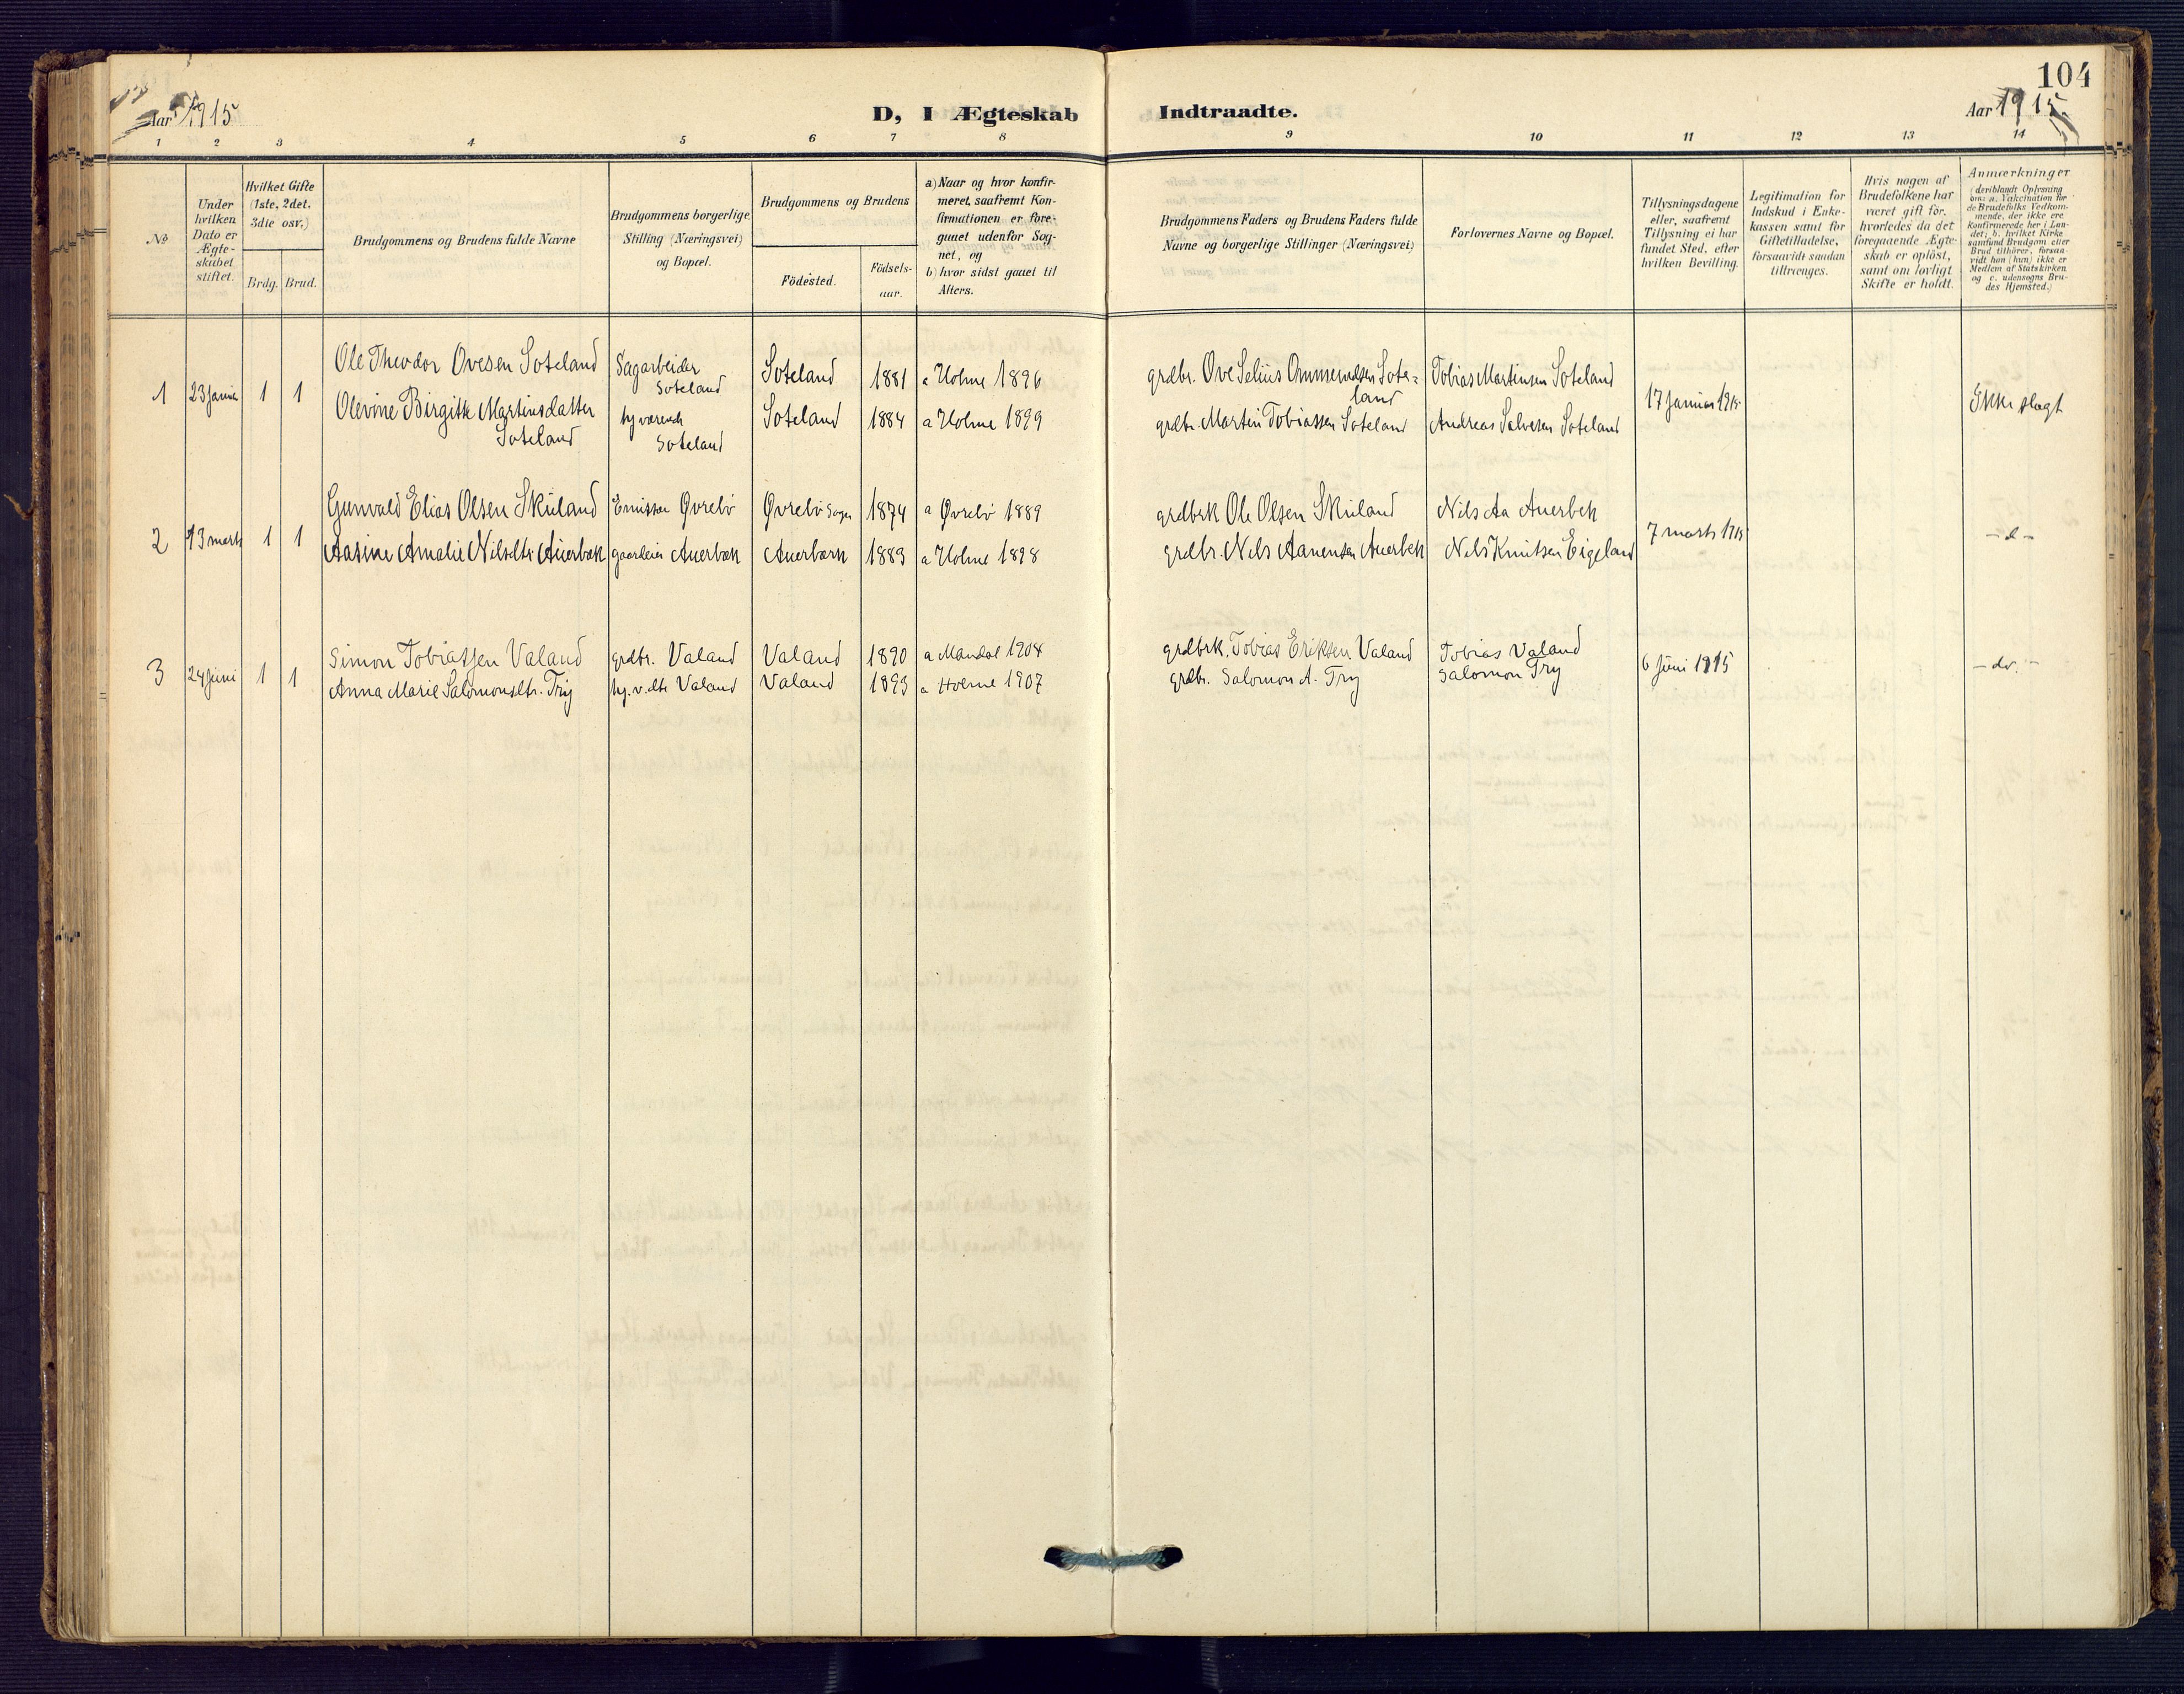 104
Aar 1915
D, I Ægteskab Indtraadte.
Aar 1915
1 2 3 4 5 6 7 8 9 10 11 12 13 14
No
Under hvilken Dato er Ægte-skabet stiftet.
Hvilket Gifte (1ste, 2det, 3die osv.)
Brdg. Brud.
Brudgommens og Brudens fulde Navne
Brudgommens borgerlige Stilling (Næringsvei) og Bopæl.
Brudgommens og Brudens
Födested.
Födsels-aar.
a) Naar og hvor konfir-
meret, saafremt Kon-
firmationen er fore-
gaaet udenfor Sog-
net, og
b) hvor sidst gaaet til
Alters.
Brudgommens Faders og Brudens Faders fulde
Navne og borgerlige Stillinger (Næringsvei)
Forlovernes Navne og Bopæl.
Tillysningsdagene
eller, saafremt
Tillysning ei har
fundet Sted, efter
hvilken Bevilling.
Legitimation for
Indskud i Enke-
kassen samt for
Giftetilladelse,
forsaavidt saadan
tiltrænges.
Hvis nogen af
Brudefolkene har
været gift før,
hvorledes da det
foregaaende Ægte-
skab er oplöst,
samt om lovligt
Skifte er holdt.
Anmærkninger
(deriblandt Oplysning
om: a. Vakcination for
de Brudefolks Vedkom-
mende, der ikke ere
Konfirmerede her i Lan-
det; b. hvilket Kirke
samfund Brudgom eller
Brud tilhörer, forsaa-
vidt han (hun) ikke er
Medlem af Statskirken
og c. udensogns Bru-
des Hjemsted.)
1 23 Januar 1 1 Ole Theodor Ovesen Soteland Sagarbeider Soteland Soteland 1881 a Holme 1896 grdbr. Ove Selius Ommundsen Sote-land Tobias Martinsen Soteland 17 januar 1915 Ikke slægt
Olevine Birgitte Martinsdatter Soteland hj værende Soteland Soteland 1884 a Holme 1899 grdbr. Martin Tobiassen Soteland Andreas Salvesen Soteland
2 13 marts 1 1 Gunvald Elias Olsen Skuland Emissær Øvrebö Øvrebö Sogn 1874 a Øvrebö 1889 grdbrk Ole Olsen Skuland Nils Aa Auerbek 7 marts 1915 -d-
Aasine Amalie Nilsdtr Auerbæk gaardeier Auerbæk Auerbæk 1883 a Holme 1898 grdbr. Nils Aanensen Auerbek Nils Knutsen Eigeland
3 24 Juni 1 1 Simon Tobiassen Valand grdbr. Valand Valand 1890 a Mandal 1904 grdbrk. Tobias Eriksen Valand Tobias Valand 6 Juni 1915 -do.-
Anna Marie Salomonsdtr. Try hj.v.dtr Valand Valand 1893 a Holme 1907 grdbr. Salomon A. Try Salomon Try